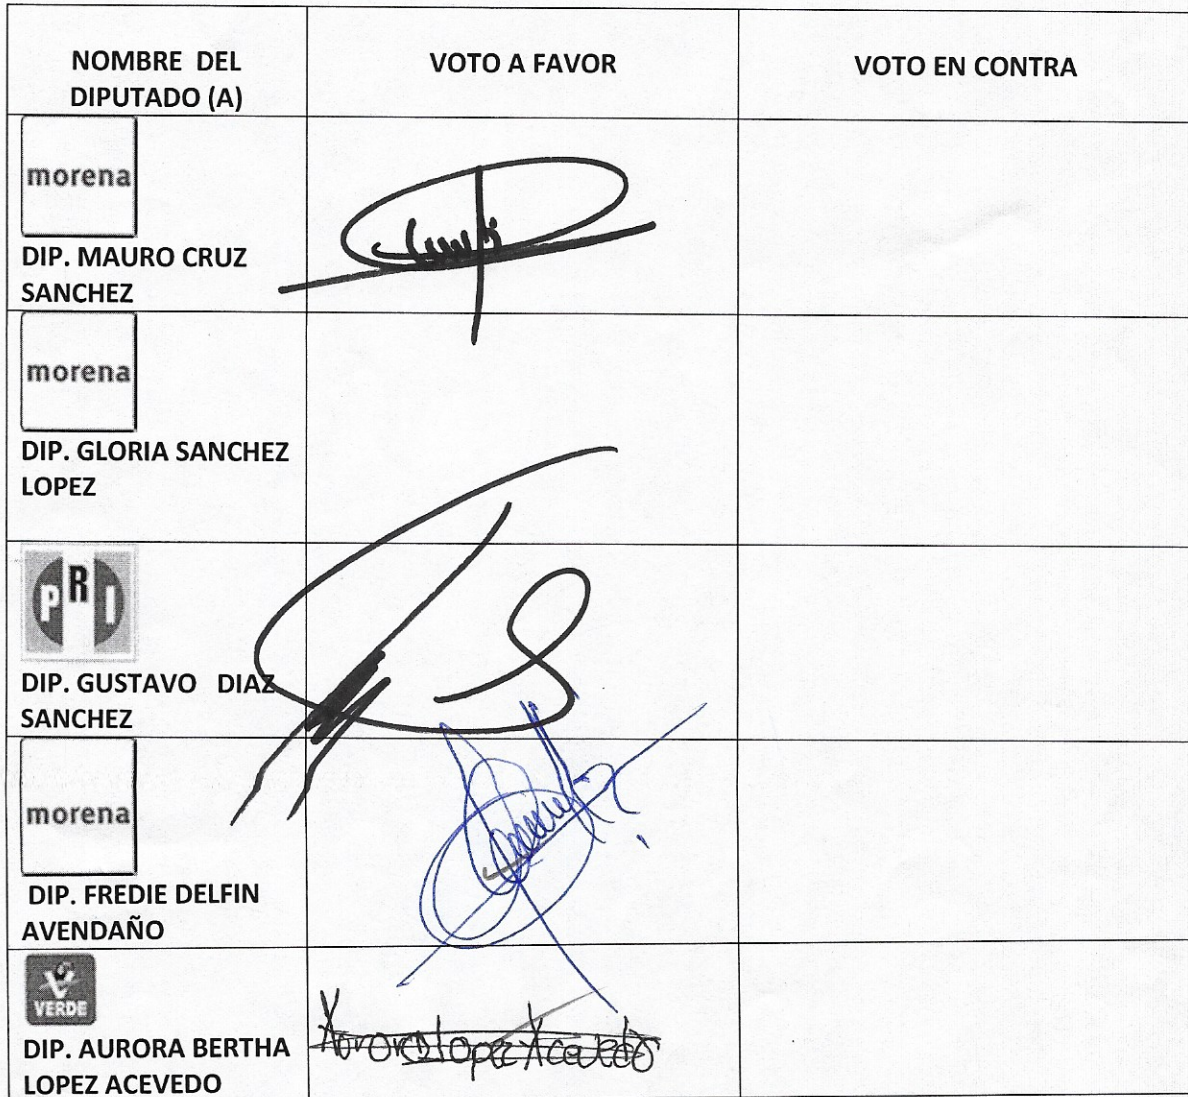 NOMBRE DEL
DIPUTADO (A)
VOTO A FAVOR
VOTO EN CONTRA
morena
DIP. MAURO CRUZ
SANCHEZ
morena
DIP. GLORIA SANCHEZ
LOPEZ
PRI
DIP. GUSTAVO DIAZ
SANCHEZ
morena
DIP. FREDIE DELFIN
AVENDAÑO
VERDE
DIP. AURORA BERTHA
LOPEZ ACEVEDO
Aurora Lopez Acevedo